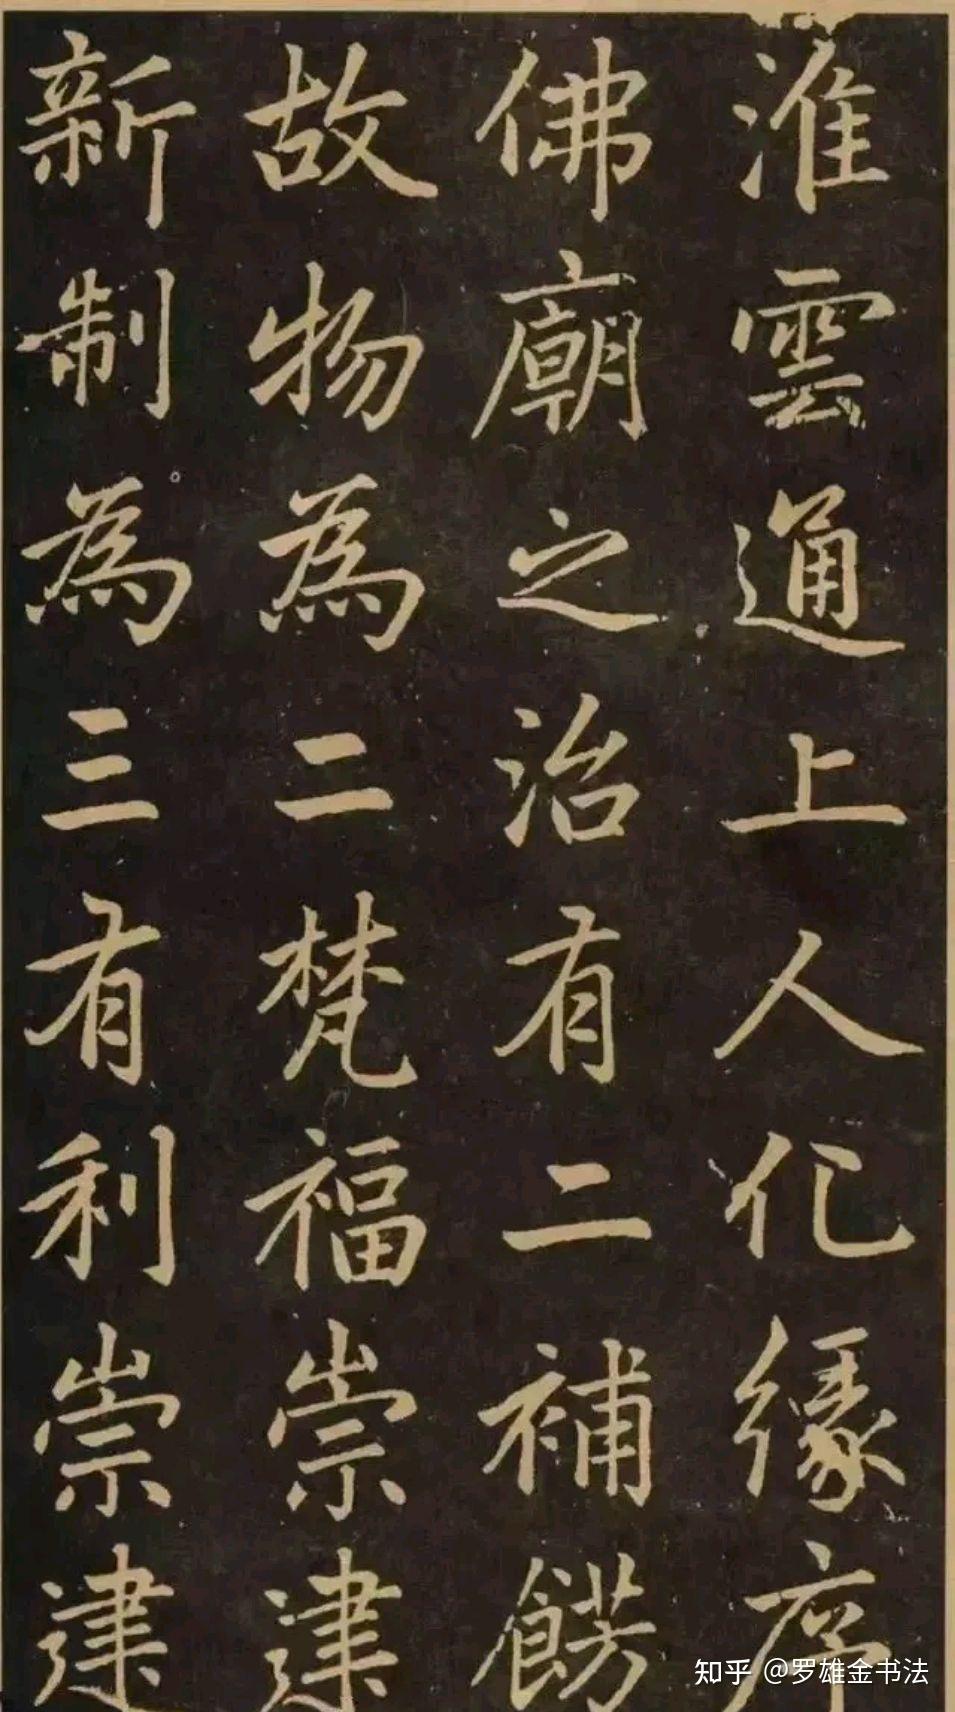 淮雲通上人化緣序
佛廟之治有二補餝
故物為二梵福崇建
新制為三有利崇建
知乎 @罗雄金书法